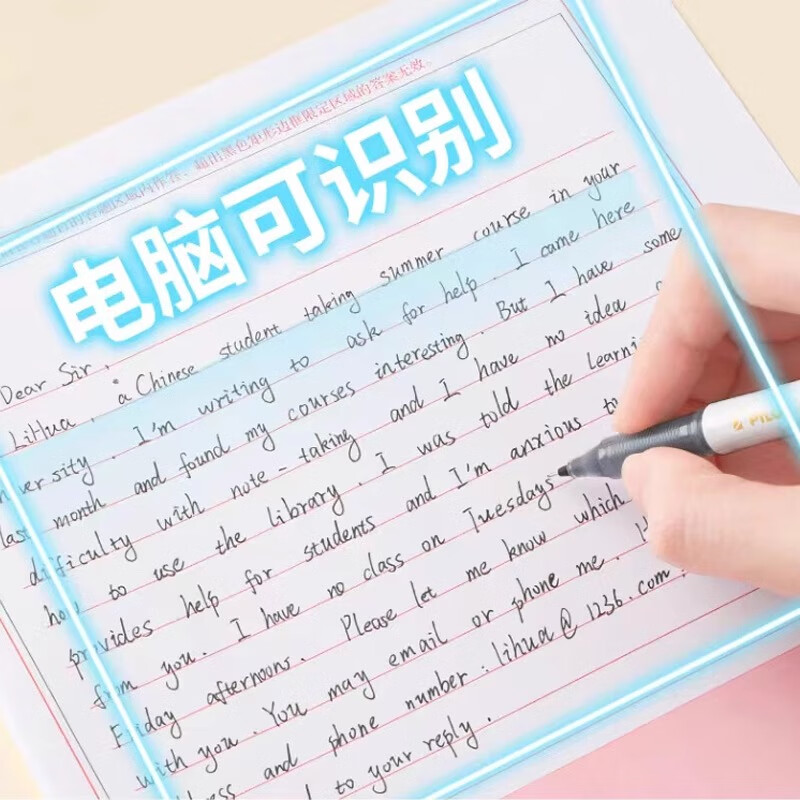 答题区域内作答,超出黑色矩形边框限定区域的答案无效。
电脑可识别
Dear Sir,
LiHua, a Chinese student taking summer course in your
versity. I'm writing to ask for help. I came here
last month and found my courses interesting. But I have some
difficulty with note-taking and I have no idea
how to use the library. I was told the learni
provides help for students and I'm anxious to
from you. I have no class on Tuesdays
Friday afternoons. Please let me know which
with you. You may email or phone me.
and phone number: lihua@1236.com
to your reply.
PILO